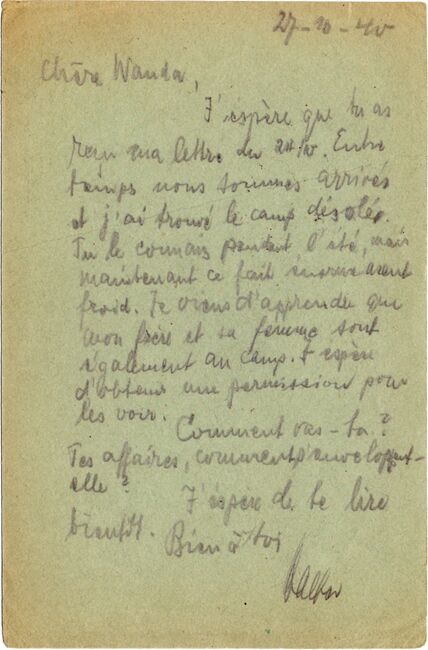 27-10-40
Chère Wanda,
J'espère que tu as
reçu ma lettre du. Entre
temps nous sommes arrivés
et j'ai trouvé le camp désolé.
Tu le connais pendant l'été, mais
maintenant ce fait énormément
froid. Je viens d'apprendre que
mon frère et sa femme sont
également au camp. J'espère
d'obtenir une permission pour
les voir.
Comment vas-tu?
Tes affaires, comment s'enveloppent-
elle?
J'espère de te lire
bientôt.
Bien à toi